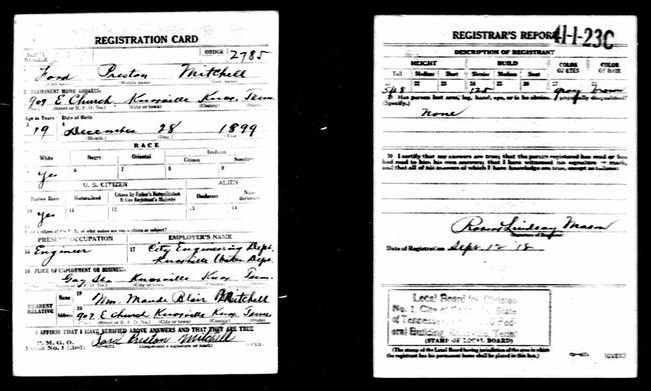 REGISTRATION CARD
ORDER 2785
Ford Preston Mitchell
PERMANENT HOME ADDRESS:
907 E. Church Knoxville Knox Tenn.
Age in Years Date of Birth
19 December 28 1899
RACE
White Negro Oriental Indian
Citizen
Yes 6 7 8
U. S. CITIZEN ALIEN
Native Born Naturalized Citizen by Father's Naturalization Declarant Non-declarant
Before Registrant's Majority
Yes 11 12 13 14
PRESENT OCCUPATION EMPLOYER'S NAME
16 Engineer 17 City Engineering Dept.
Knoxville Water Dept.
18 PLACE OF EMPLOYMENT OR BUSINESS:
Gay St. Knoxville Knox Tenn.
NEAREST RELATIVE
Name 19 Maude Blair Mitchell
Address 20 907 E Church Knoxville Knox Tenn
I AFFIRM THAT I HAVE VERIFIED ABOVE ANSWERS AND THAT THEY ARE TRUE
P. M. G. O.
Ford Preston Mitchell
(OVER)
REGISTRAR'S REPORT
41-1-23C
DESCRIPTION OF REGISTRANT
HEIGHT BUILD COLOR OF EYES COLOR OF HAIR
Tall Medium Short Slender Medium Stout
21 22 23 24 25 26 27 28
5'8 125 gray brown
29 Has person lost arm, leg, hand, eye, or is he obviously physically disqualified?
(Specify.)
None
30 I certify that my answers are true; that the person registered has read or has
had read to him his own answers; that I have witnessed his signature or mark,
and that all of his answers of which I have knowledge are true, except as follows:
Lindsay Mason
Date of Registration Sept. 12 '18
Local Board for Division
No. 1, City of Knoxville, State
of Tennessee, Fed-
eral Building, Knoxville, Tenn.
(STAMP OF LOCAL BOARD)
(The stamp of the Local Board having jurisdiction of the area in which
the registrant has his permanent home shall be placed in this box.)
(OVER)